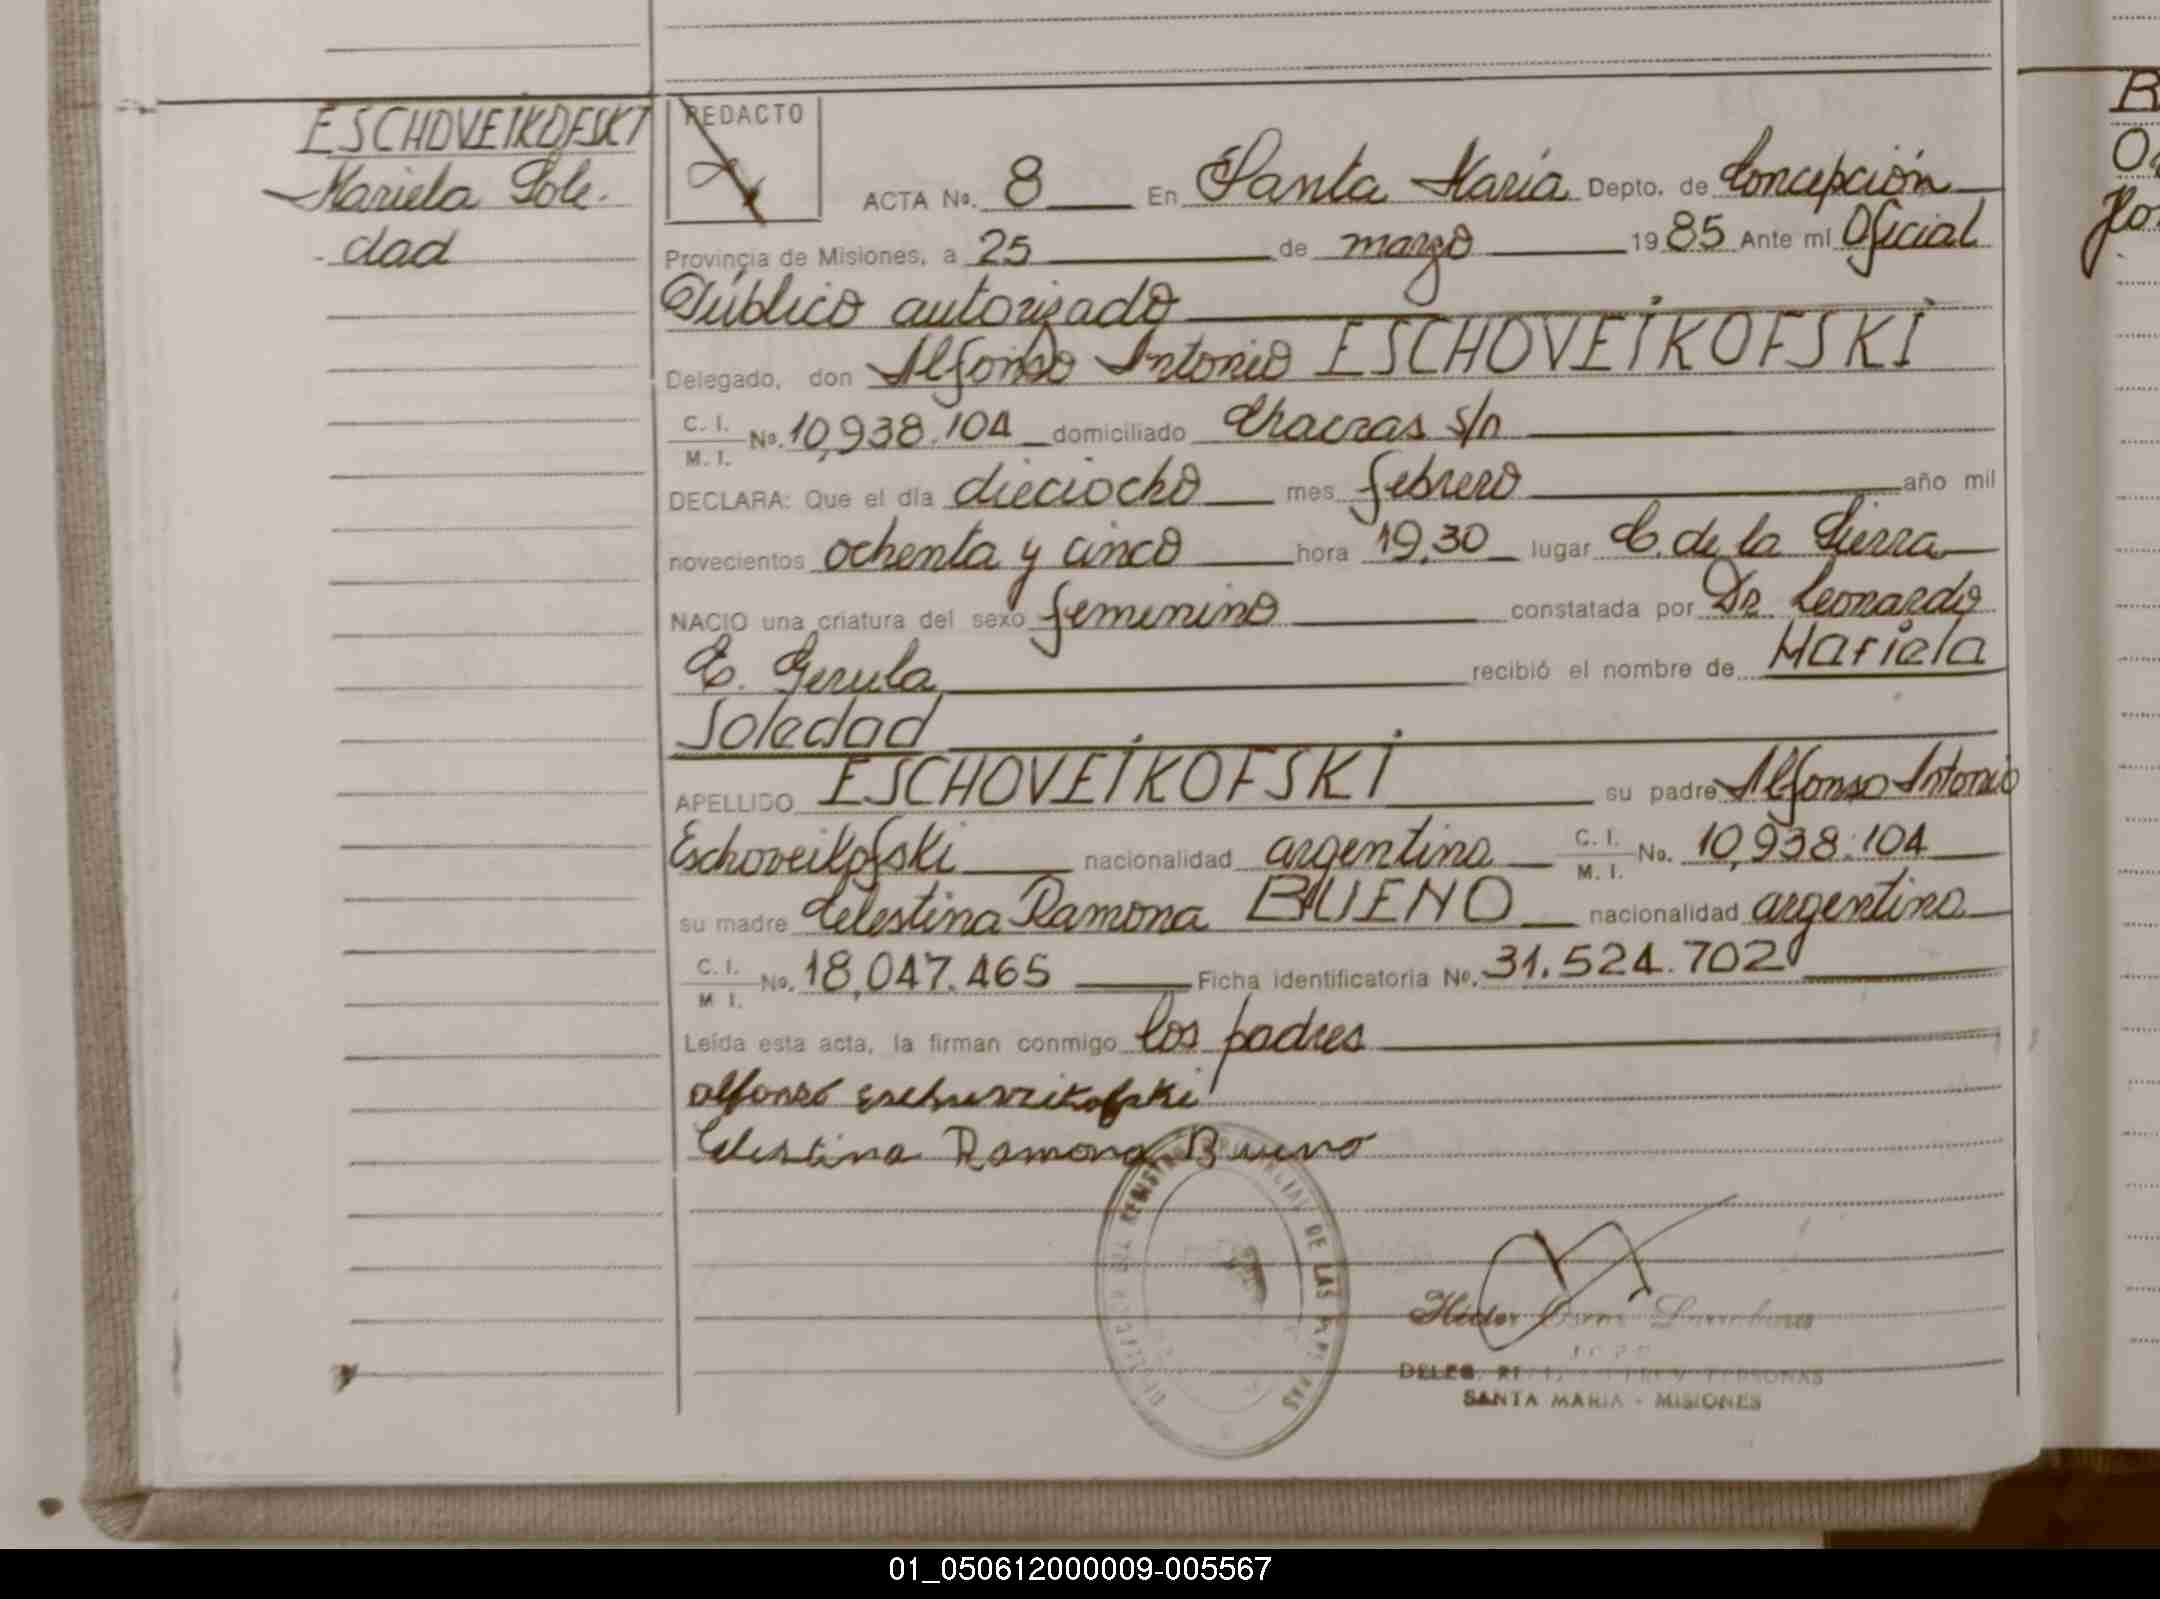 ESCHOVEIKOFSKI
Mariela Sole-
dad
REDACTO
ACTA No. 8 En Santa María Depto. de Concepción
Provincia de Misiones, a 25 de marzo 1985 Ante mí Oficial
Público autorizado
Delegado, don Alfonso Antonio ESCHOVEIKOFSKI
C. I.
M. I. No. 10,938.104 domiciliado Chacras s/n
DECLARA: Que el día dieciocho mes febrero año mil
novecientos ochenta y cinco hora 19,30 lugar C. de la Sierra
NACIO una criatura del sexo femenino constatada por Dr. Leonardo
C. Gerula recibió el nombre de Mariela
Soledad
APELLIDO ESCHOVEIKOFSKI su padre Alfonso Antonio
Eschoveikofski nacionalidad argentina C. I.
M. I. No. 10,938.104
su madre Celestina Ramona BUENO nacionalidad argentina
C. I.
M I. No. 18,047.465 Ficha identificatoria No. 31.524.702
Leída esta acta, la firman conmigo los padres
alfonso
Celestina Ramona Bueno
DE LAS
Héctor
DELEG. PERSONAS
SANTA MARIA - MISIONES
01_050612000009-005567